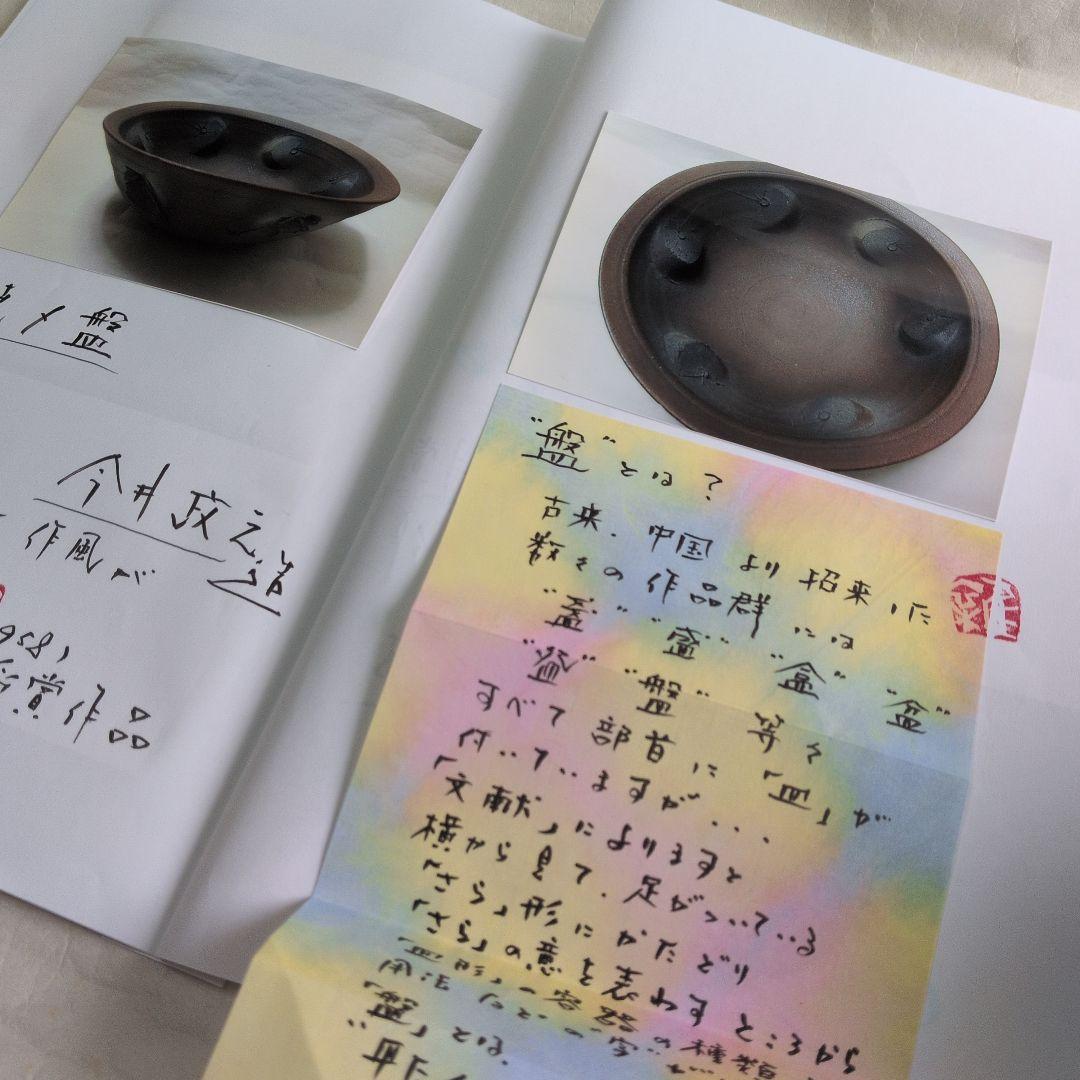 盤
今井政之造
作風が
958,
受賞作品
"盤"とは？
古来、中国より招来した
数々の作品群には
"蓋" "盛" "盒" "盆"
"盤" 等々
すべて部首に「皿」が
付いていますが...
「文献」によりますと
横から見て、足がついている
「さら」形にかたどり
「さら」の意を表わすところから
「皿形」の容器の種類
用法などの字
「盤」とは、